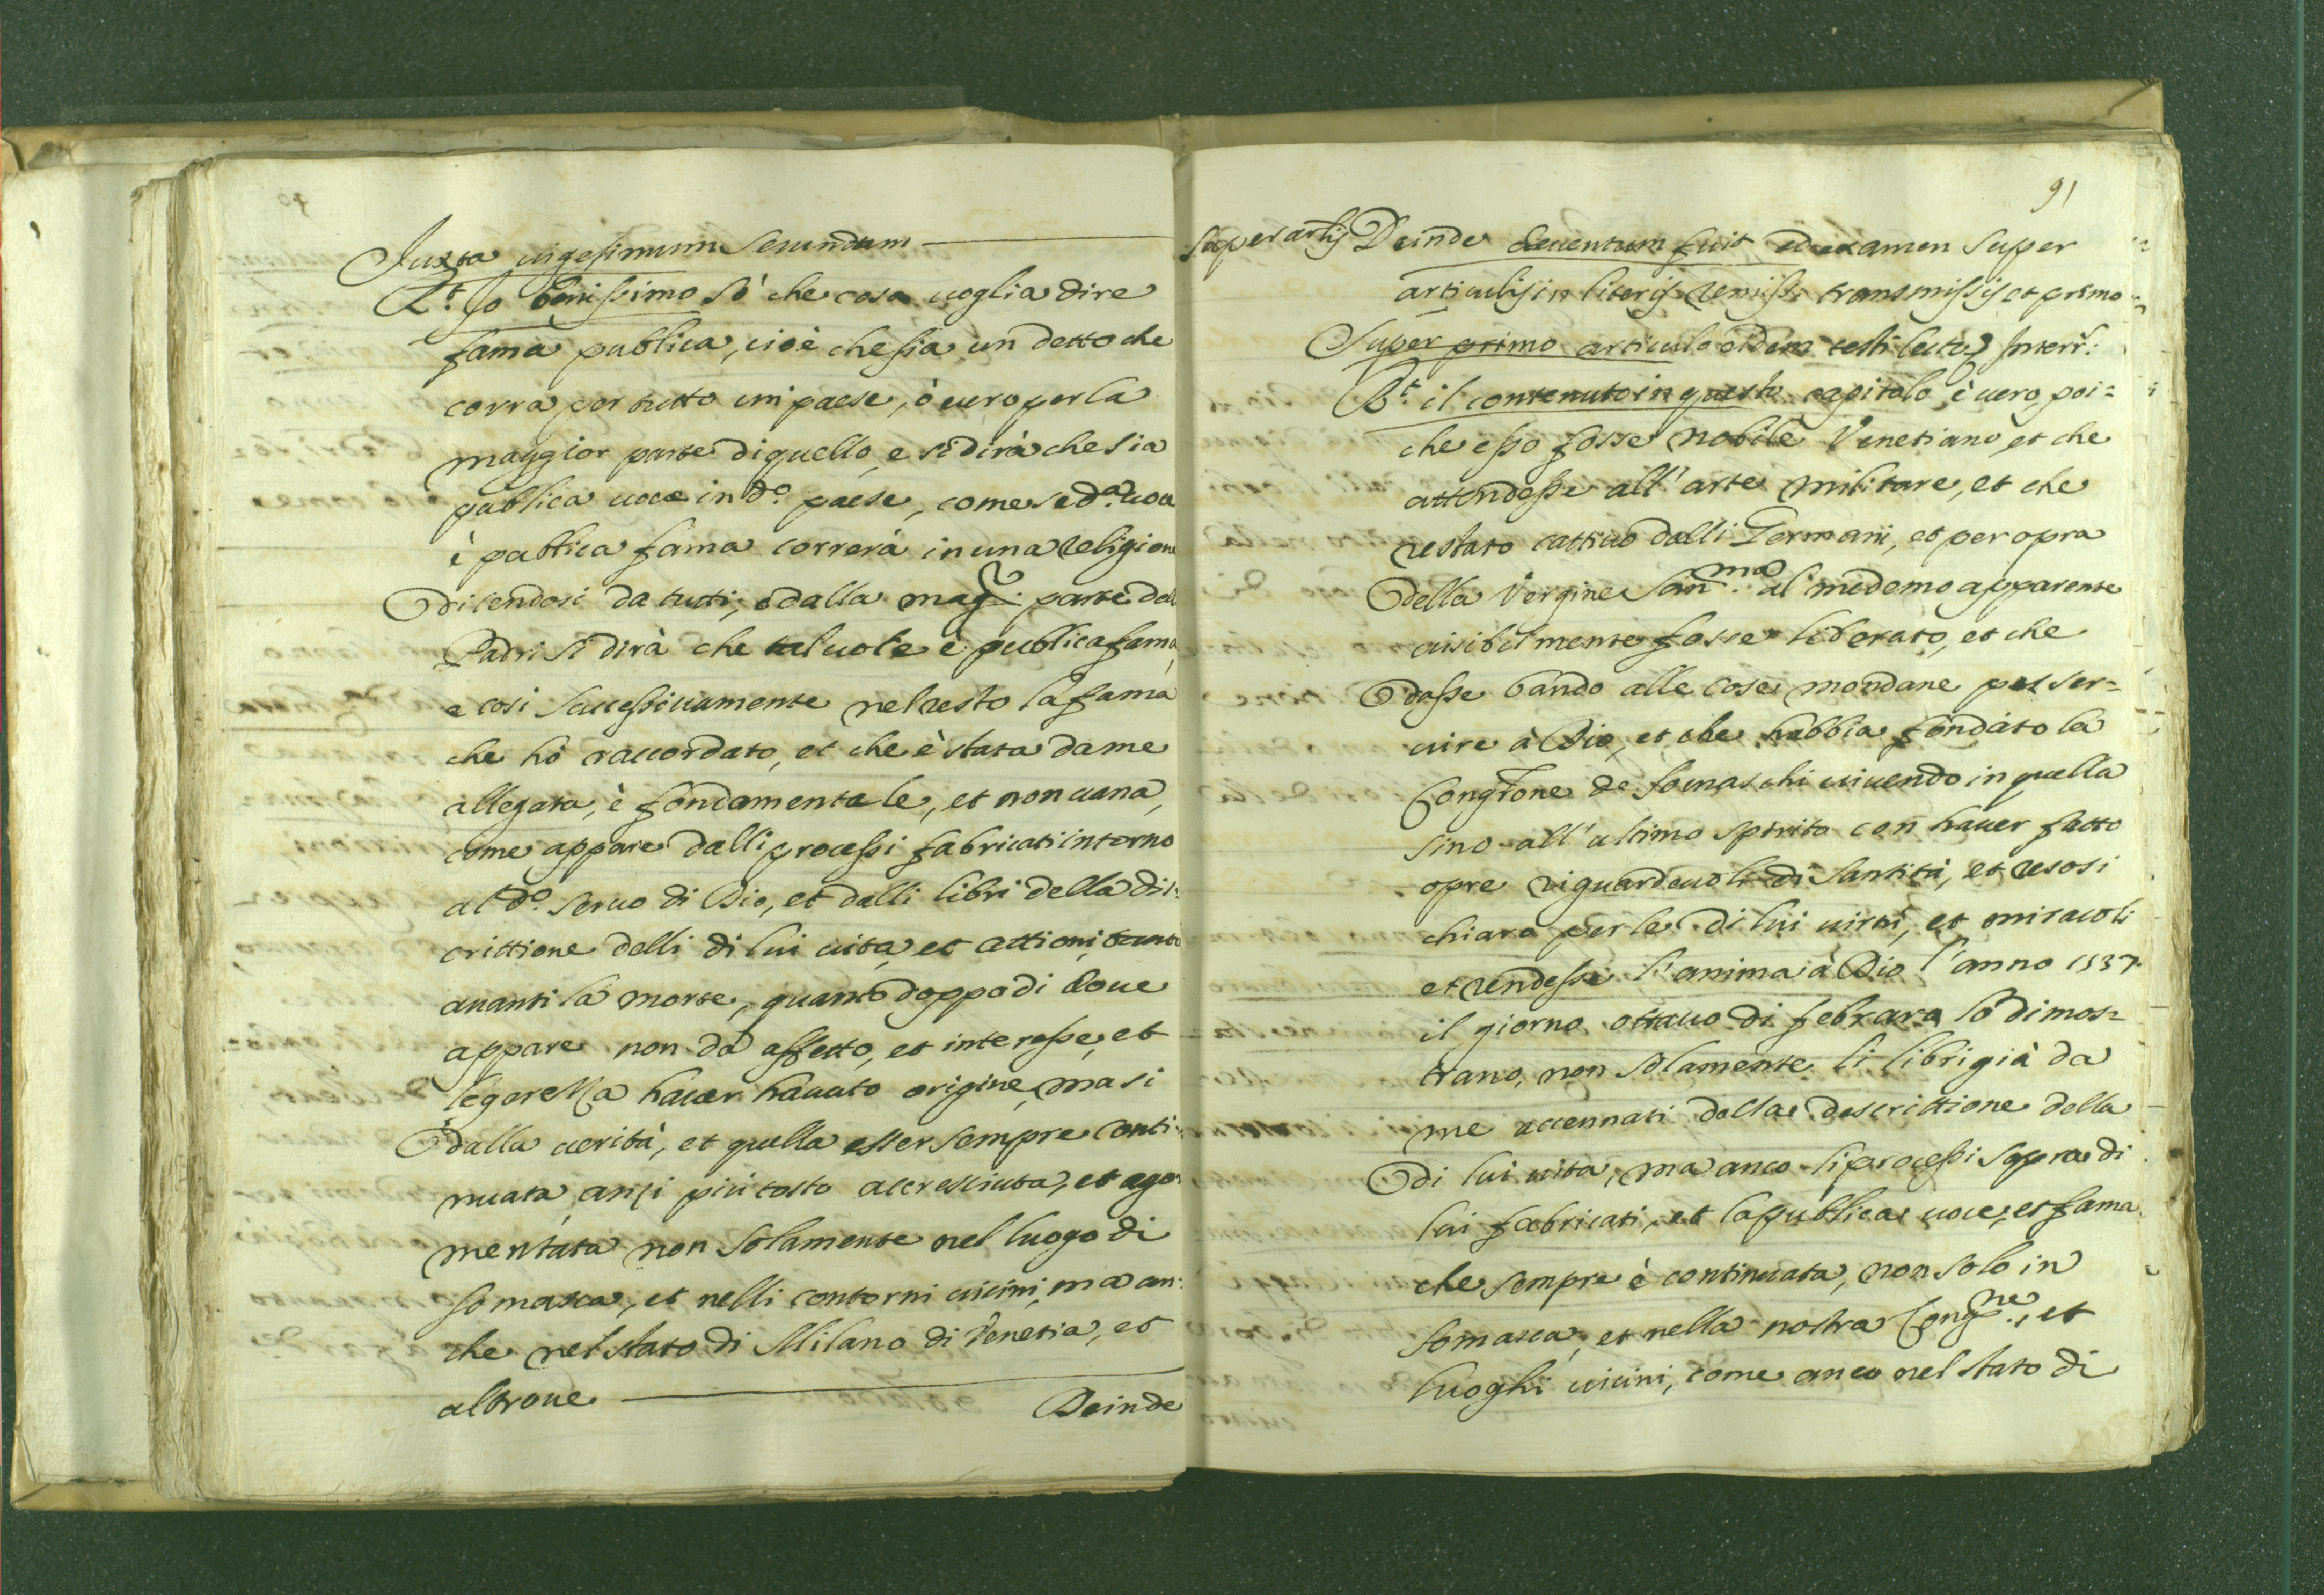 Juxta uigesimum secundum
R.t Io benissimo sò che cosa uoglia dire
fama publica, cioè che sia un detto che
corra per tutto un paese, ò uero per la
maggior parte di quello, e si dirà che sia
publica uoce in d.o paese, come se d.a uoce
è publica fama correrà in una religione
dicendosi da tutti, ò dalla mag.r parte delli
Padri si dirà che tal uoce è publica fama,
e cosi successiuamente nel resto la fama
che hò raccordato, et che è stata da me
allegata, è fondamentale, et non uana,
come appare dalli processi fabricati intorno
al d.o seruo di Dio, et dalli libri della dis:
crittione delli di lui uita, et attioni, tanto
auanti la morte, quanto doppo di doue
appare non da affetto, et interesse, et
legerezza hauer hauuto origine, ma si
dalla uerità, et quella esser sempre conti:
nuata, anzi più tosto accresciuta, et ago:
mentata non solamente nel luogo di
somasca, et nelli contorni uicini, ma an:
che nel stato di Milano di Venetia, et
altroue
Deinde
91
super artis Deinde deuentum fuit ad examen super
articulis in literis remissis transmissis et primo
Super primo articulo eidem testi lecto Interr.:
R.t il contenuto in questo capitolo è uero, poi=
che esso fosse nobile Venetiano, et che
attendesse all' arte militare, et che
restato cattiuo dalli Germani, et per opra
della Vergine San.ma al medemo apparente
uisibilmente fosse liberato, et che
dasse bando alle cose mondane per ser=
uire à Dio, et che habbia fondato la
Congr.one de somaschi uiuendo in quella
sino all' ultimo spirito con hauer fatto
opre riguardeuoli di santità, et resosi
chiaro per le di lui uirtù, et miracoli
et rendesse l'anima à Dio l'anno 1537
il giorno ottauo di febraro lo dimos=
trano, non solamente li libri già da
me accennati della descrittione della
di lui uita, ma anco li processi sopra di
lui fabricati, et la publica uoce, et fama
che sempre è continuata, non solo in
somasca, et nella nostra Cong.ne, et
luoghi uicini, come anco nel stato di